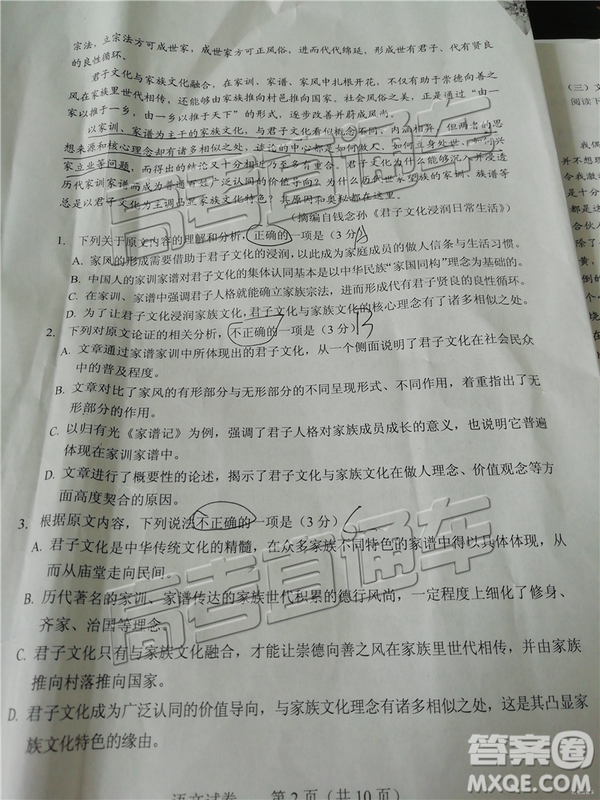 宗法，立宗法方可成世家，成世家方可正风俗，进而代代绵延，形成世有君子、代有贤良
的良性循环。
君子文化与家族文化融合，在家训、家谱、家风中扎根开花，不仅有助于崇德向善之
风在家族里世代相传，还能够由家族推向村邑推向国家。社会风俗之美，正贵于这种“由一
家以推于一乡，由一乡以推于天下”的形式，逐步改善并蔚成风。
以家训、家谱为主干的家族文化，与君子文化看似概念不同、内涵相异，但两者的思
想来源和核心理念却有诸多相似之处，谈论的中心都是如何做人、如何立身处世、如何兴
家立业等问题，而得出的结论又十分相近乃至多有重合。君子文化为什么能够沉入并浸透
历代家训家谱而成为广泛认同的价值导向？为什么历朝世家望族的家训、家谱、家规等
总是以君子文化为主调凸显家族文化特色？其原因和奥秘都在这里。
（摘编自钱念孙《君子文化浸润日常生活》）
1. 下列关于原文内容的理解和分析，正确的一项是（3分）
A. 家风的形成需要借助于君子文化的浸润，以此成为家庭成员的做人信条与生活习惯。
B. 中国人的家训家谱对君子文化的集体认同基本是以中华民族“家国同构”理念为基础的。
C. 在家训、家谱中强调君子人格就能确立家族宗法，进而形成代有君子贤良的良性循环。
D. 为了让君子文化浸润家族文化，家族文化与君子文化的核心理念有了诸多相似之处。
2. 下列对原文论证的相关分析，不正确的一项是（3分）B
A. 文章通过家谱家训中所体现出的君子文化，从一个侧面说明了君子文化在社会民众
中的普及程度。
B. 文章对比了家风的有形部分与无形部分的不同呈现形式、不同作用，着重指出了无
形部分的作用。
C. 以归有光《家谱记》为例，强调了君子人格对家族成员成长的意义，也说明它普遍
体现在家训家谱中。
D. 文章进行了概要性的论述，揭示了君子文化与家族文化在做人理念、价值观念等方
面高度契合的原因。
3. 根据原文内容，下列说法不正确的一项是（3分）
A. 君子文化是中华传统文化的精髓，在众多家族不同特色的家谱中得以具体体现，从
而从庙堂走向民间。
B. 历代著名的家训、家谱传达的家族世代积累的德行风尚，一定程度上细化了修身、
齐家、治国等理念。
C. 君子文化只有与家族文化融合，才能让崇德向善之风在家族里世代相传，并由家族
推向村落推向国家。
D. 君子文化成为广泛认同的价值导向，与家族文化理念有诸多相似之处，这是其凸显家
族文化特色的缘由。
语文试卷 第2页（共10页）
（三）文
阅读下
高考直通车
高考直通车
高考直通车
答案圈
MXQE.COM